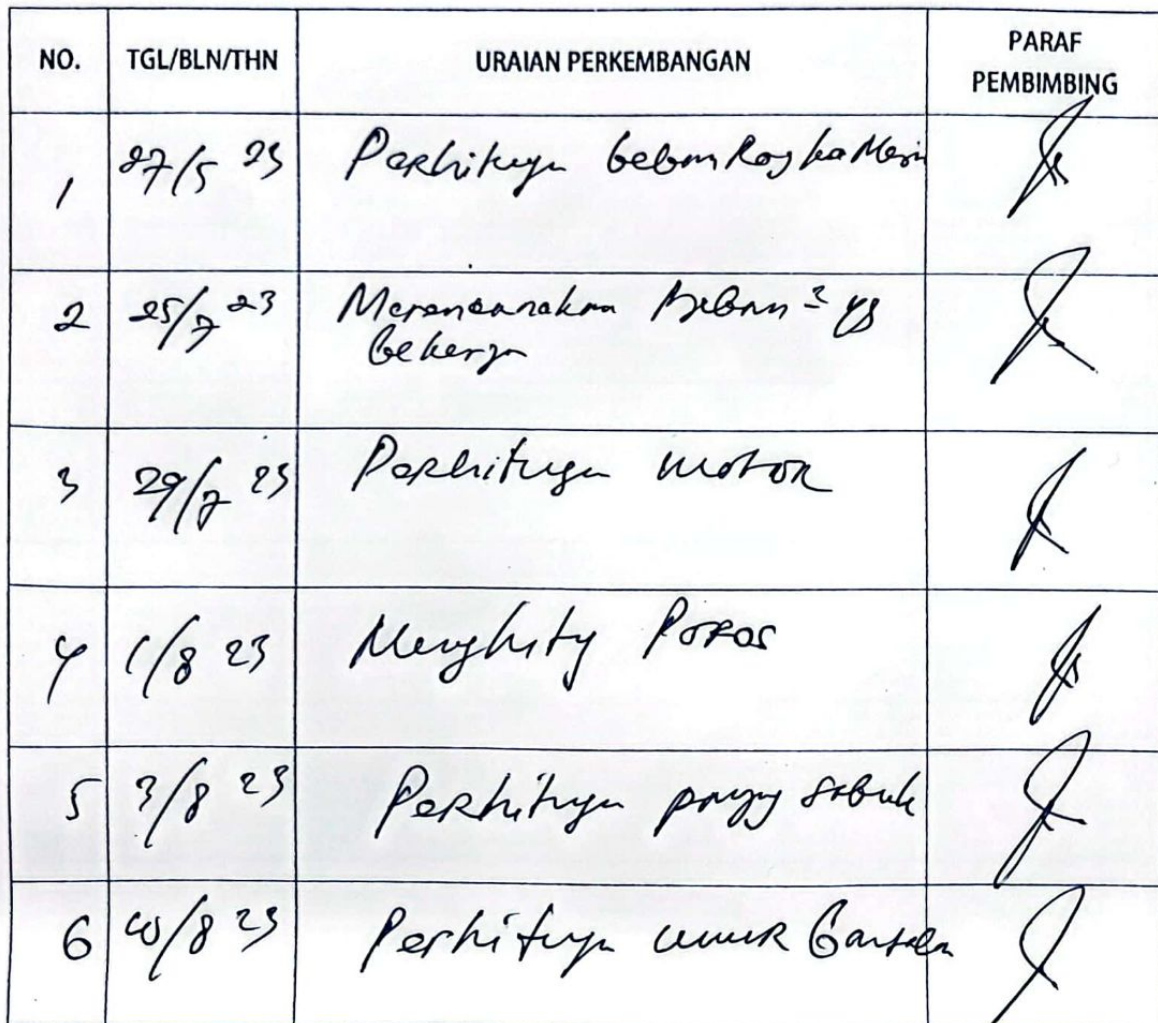 NO. TGL/BLN/THN URAIAN PERKEMBANGAN PARAF
PEMBIMBING
1 27/5 23 Perhitungan beban Rangka Mesin
2 25/7 23 Merencanakan Beban² yg
bekerja
3 29/7 23 Perhitungan motor
4 1/8 23 Menghitung Poros
5 3/8 23 Perhitungan sabuk
6 /8 23 Perhitungan umur Bantalan